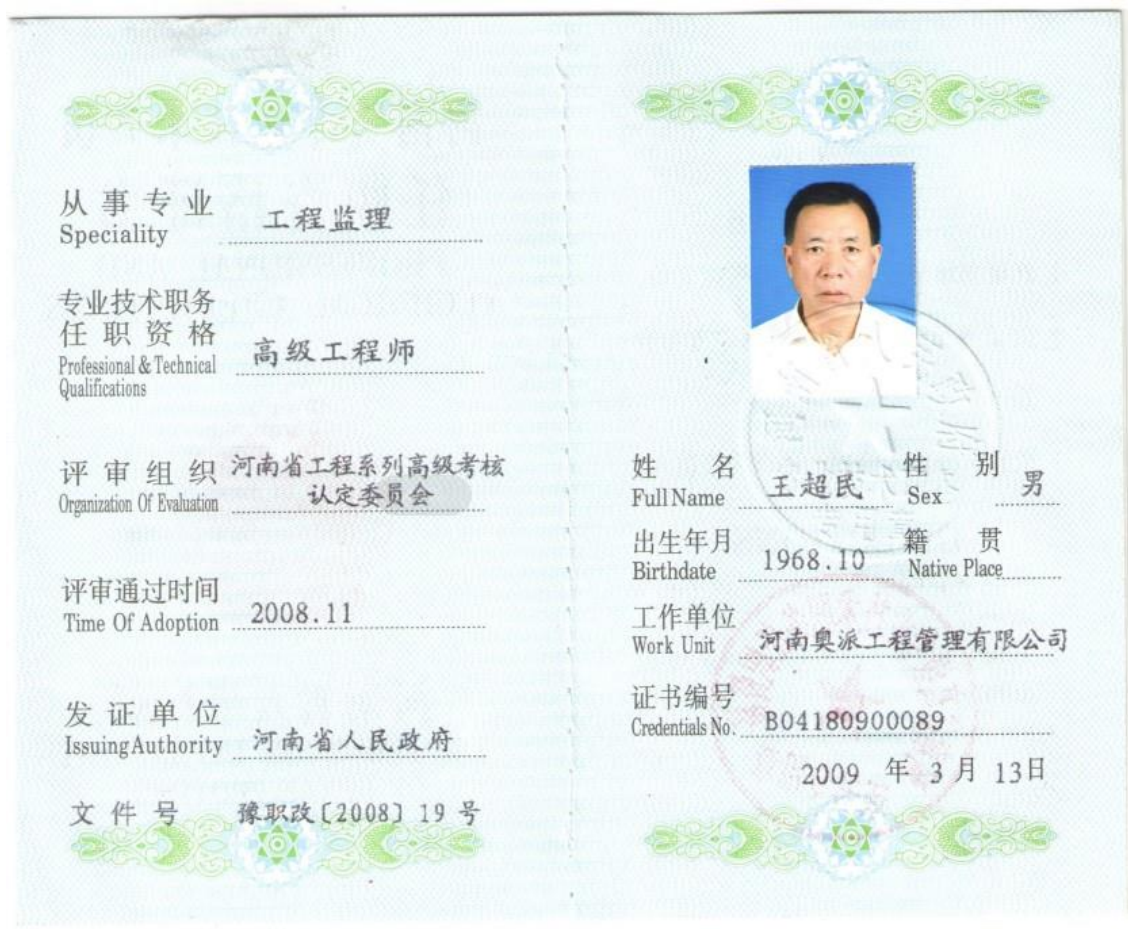 从事专业
Speciality
工程监理
专业技术职务
任职资格
Professional & Technical
Qualifications
高级工程师
评审组织
Organization Of Evaluation
河南省工程系列高级考核
认定委员会
评审通过时间
Time Of Adoption
2008.11
发证单位
Issuing Authority
河南省人民政府
文件号
豫职改〔2008〕19 号
姓名
Full Name
王超民
性别
Sex
男
出生年月
Birthdate
1968.10
籍贯
Native Place
工作单位
Work Unit
河南奥派工程管理有限公司
证书编号
Credentials No.
B04180900089
2009 年 3 月 13日